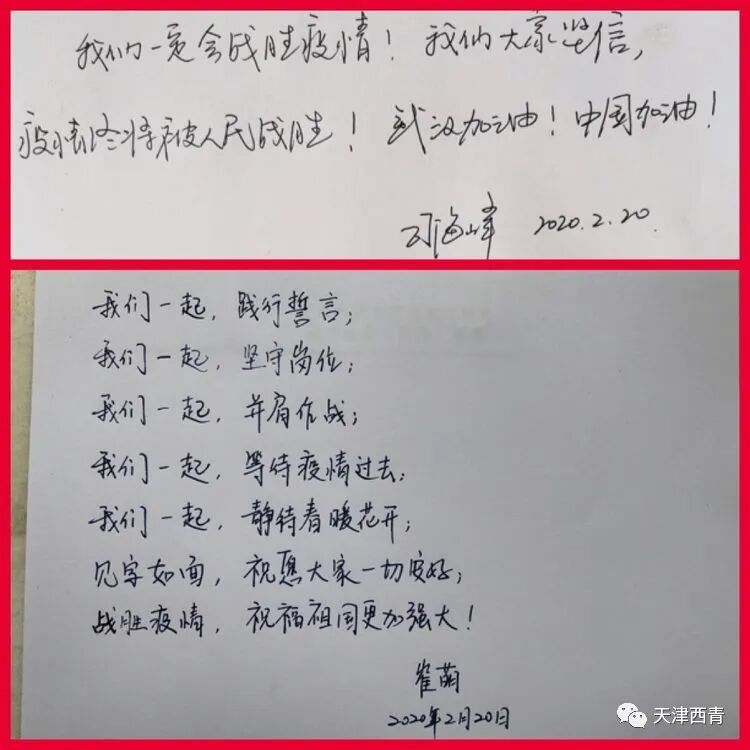 我们一定会战胜疫情！我们大家坚信，
疫情终将被人民战胜！武汉加油！中国加油！
海峰 2020.2.20.
我们一起，践行誓言；
我们一起，坚守岗位；
我们一起，并肩作战；
我们一起，等待疫情过去；
我们一起，静待春暖花开；
见字如面，祝愿大家一切安好；
战胜疫情，祝福祖国更加强大！
崔萌
2020年2月20日
天津西青